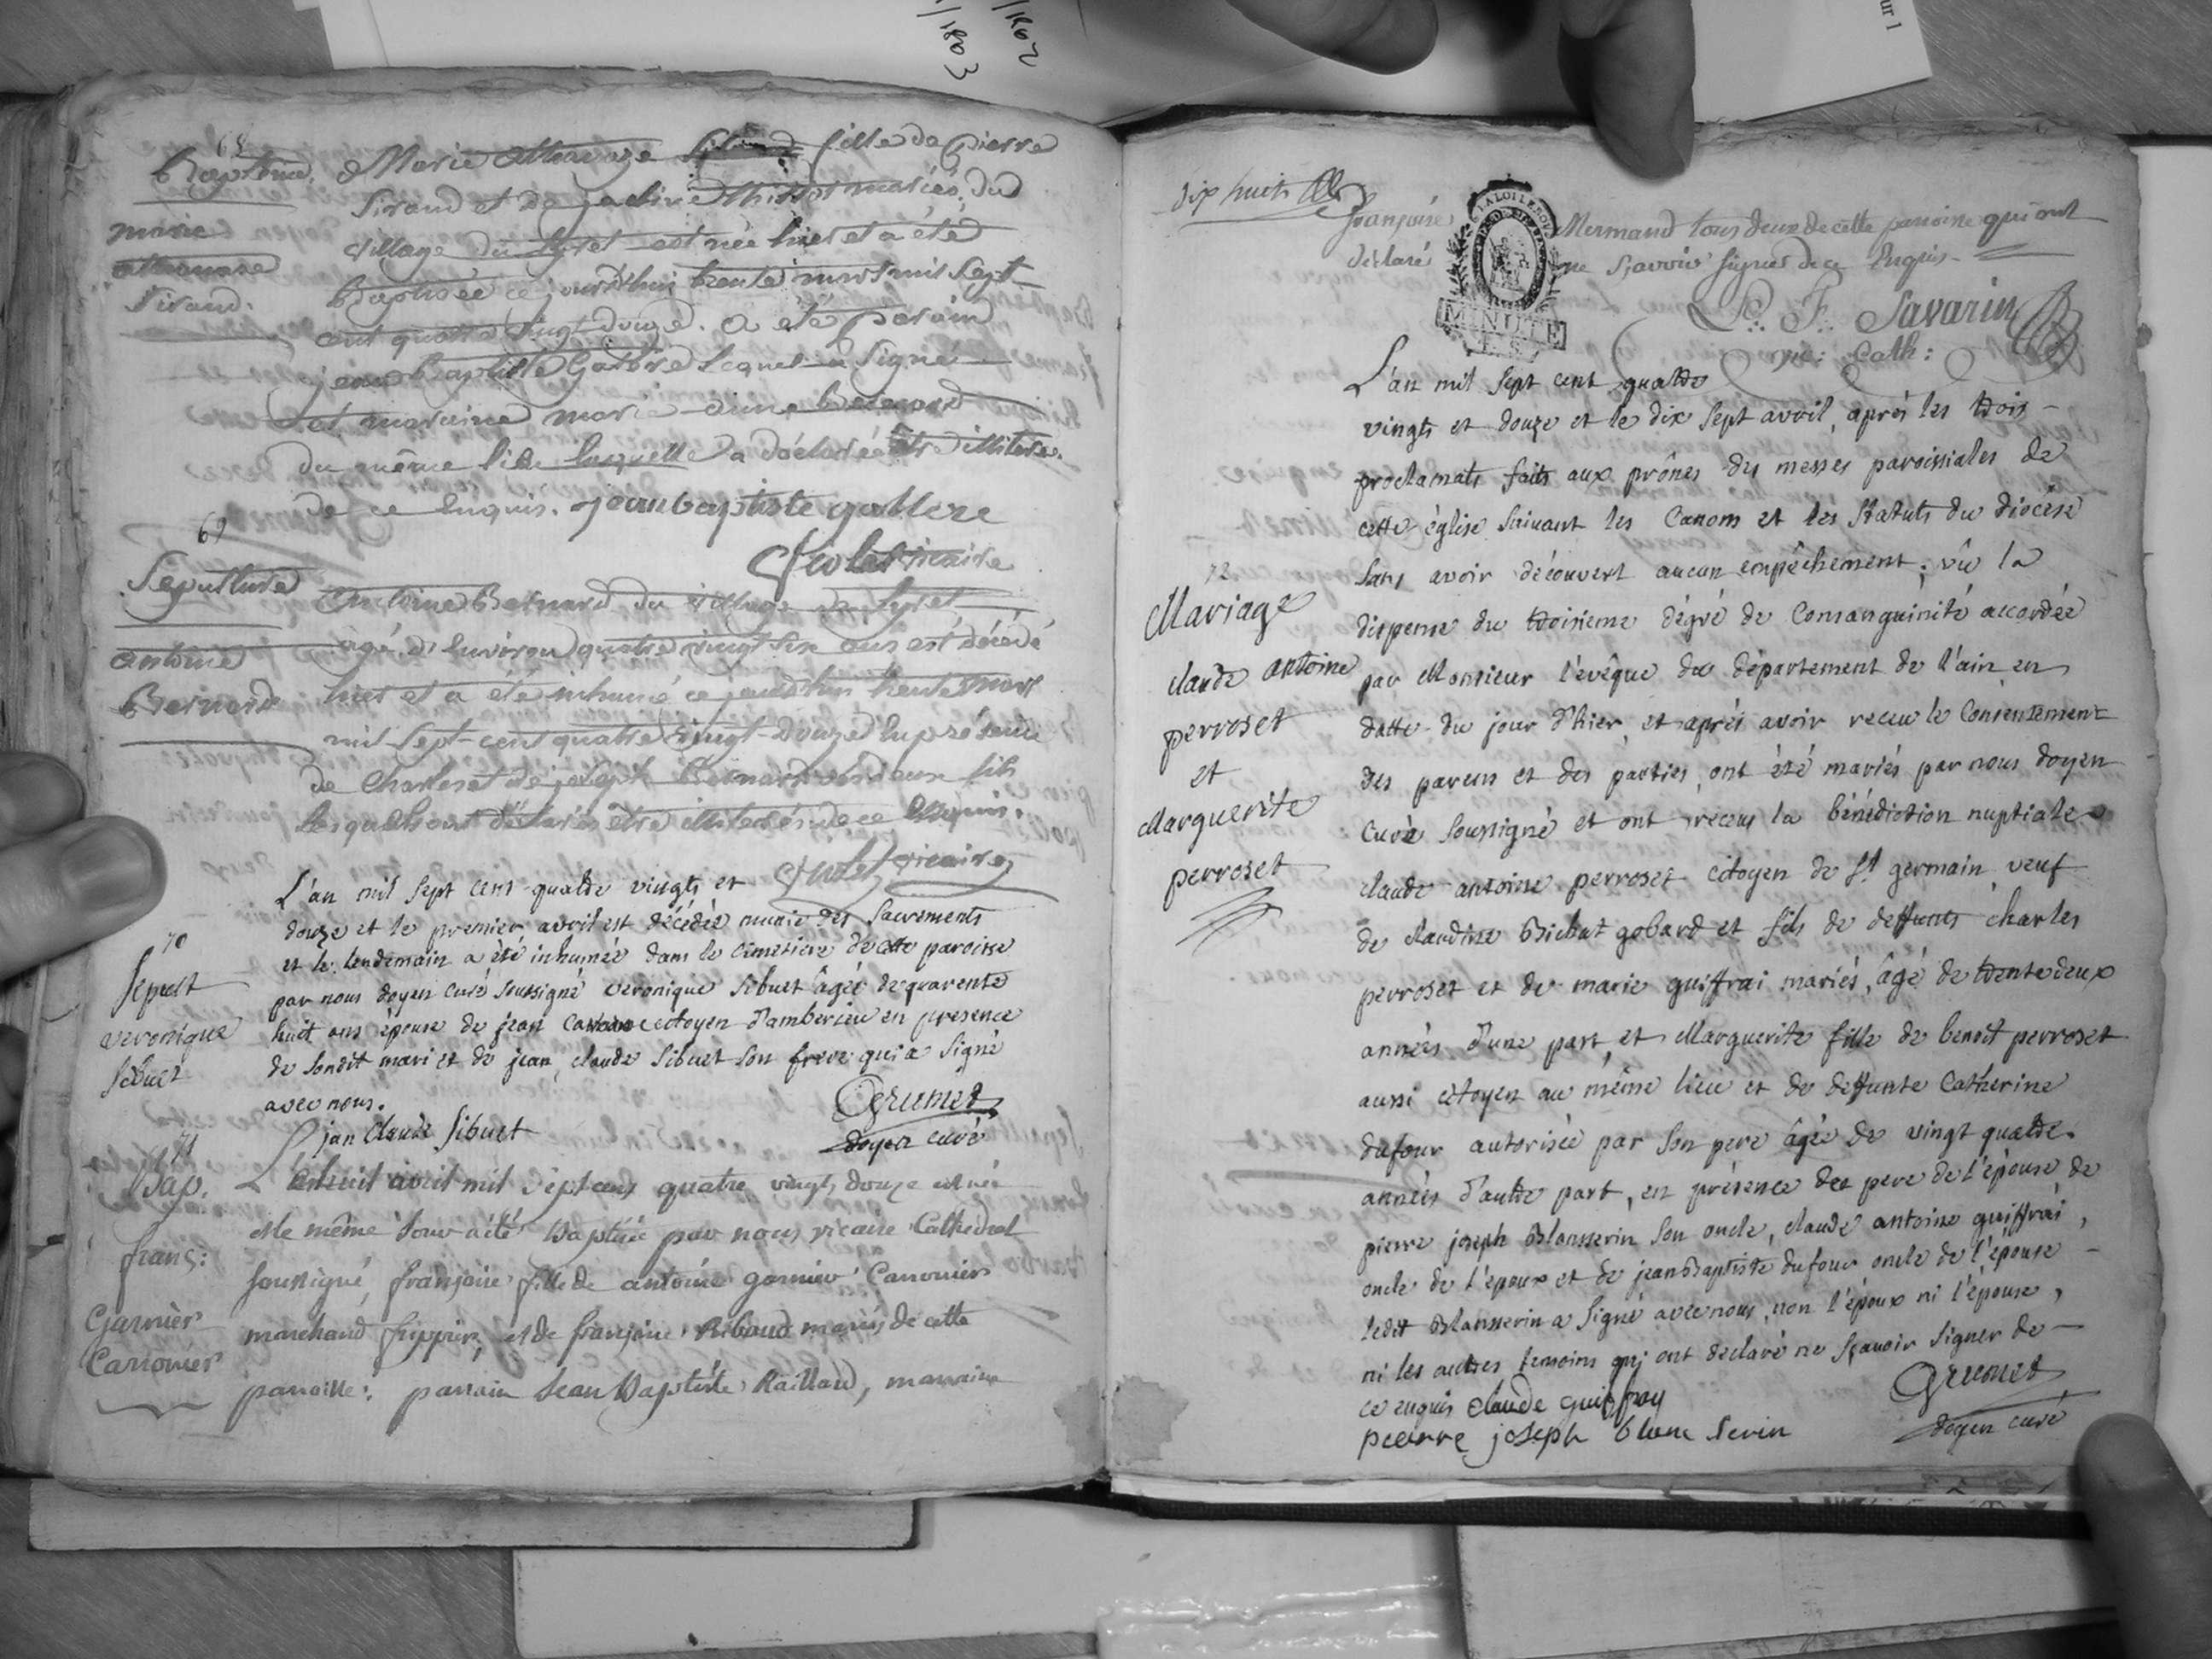 1802
1803
ur 1
68
Baptême.
marie
Siraud.
Marie fille de Pierre
Siraud et de mariés du
village du Tyret est née hier et a été
Baptisée ce jourd'hui trente mars mil sept
cent quatre vingt douze. a été parain
jean Baptiste Gallere lequel a signé
et maraine marie Bernard
du même lieu laquelle a déclaré être illiterée
de ce Enquis. jean baptiste gallere
vicaire
69
Sepulture
antoine
Bernard
Antoine Bernard du village du Tyret
agé d'environ quatre vingt six ans est décédé
hier et a été inhumé ce jourd'hui trente mars
mil sept-cent quatre vingt-douze En présence
de Charles et de joseph Bernard ses deux fils
lesquels ont déclarés etre illiterés de ce Enquis.
vicaire
70
Sepult
veronique
Sibuet
L'an mil sept cent quatre vingts et
douze et le premier avril est décédée munie des Sacrements
et le lendemain a été inhumée dans le cimetiere de cette paroisse
par nous doyen curé soussigné veronique Sibuet âgée de quarente
huit ans épouse de jean citoyen d'amberieu en presence
de sondit mari et de jean claude Sibuet son frere qui a signé
avec nous.
jan Claude Sibuet
Grumet
doyen curé
71
Bap.
franç:
Garnier
Canonier
L'an huit avril mil Sept cens quatre vingts douze est née
et le même jour a été Baptisée par nous vicaire Cathédral
soussigné, françoise fille de antoine garnier Canonier
marchand frippier, et de françoise Ribaud mariés de cette
paroisse: parrain Jean Baptiste Raillard, marraine
dix huit
françoise Mermand tous deux de cette paroisse qui ont
déclaré ne sçavoir signer de ce Enquis
L. F. Savarin
vic: Cath:
LA LOI LE ROI
MINUTE
72
Mariage
claude antoine
perroset
et
Marguerite
perroset
L'an mil sept cent quatre
vingts et douze et le dix sept avril, aprés les trois
proclamats faits aux prônes des messes paroissiales de
cette église suivant les Canons et les statuts du diocése
sans avoir découvert aucun empêchement; vû la
dispense du troisieme dégré de Consanguinité accordée
par Monsieur l'evêque du département de l'ain en
datte du jour d'hier, et aprés avoir receu le Consentement
des parens et des parties, ont été mariés par nous doyen
Curé soussigné et ont receus la bénédiction nuptiale
claude antoine perroset citoyen de St germain veuf
de claudine Bichat gobard et fils de deffunts charles
perroset et de marie guiffrai mariés, âgé de trente deux
années d'une part, et Marguerite fille de benoit perroset
aussi citoyen au même lieu et de deffunte Catherine
dufour autorisée par son pere âgée de vingt quatre
années d'autre part, en présence des pere de l'épouse, de
pierre joseph Blansserin son oncle, claude antoine guiffrai,
oncle de l'epoux et de jean Baptiste dufour oncle de l'épouse
ledit Blansserin a signé avec nous, non l'époux ni l'épouse,
ni les autres temoins qui ont declaré ne sçavoir signer de
ce enquis claude guiffray
pierre joseph blanc serin
Grumet
doyen curé